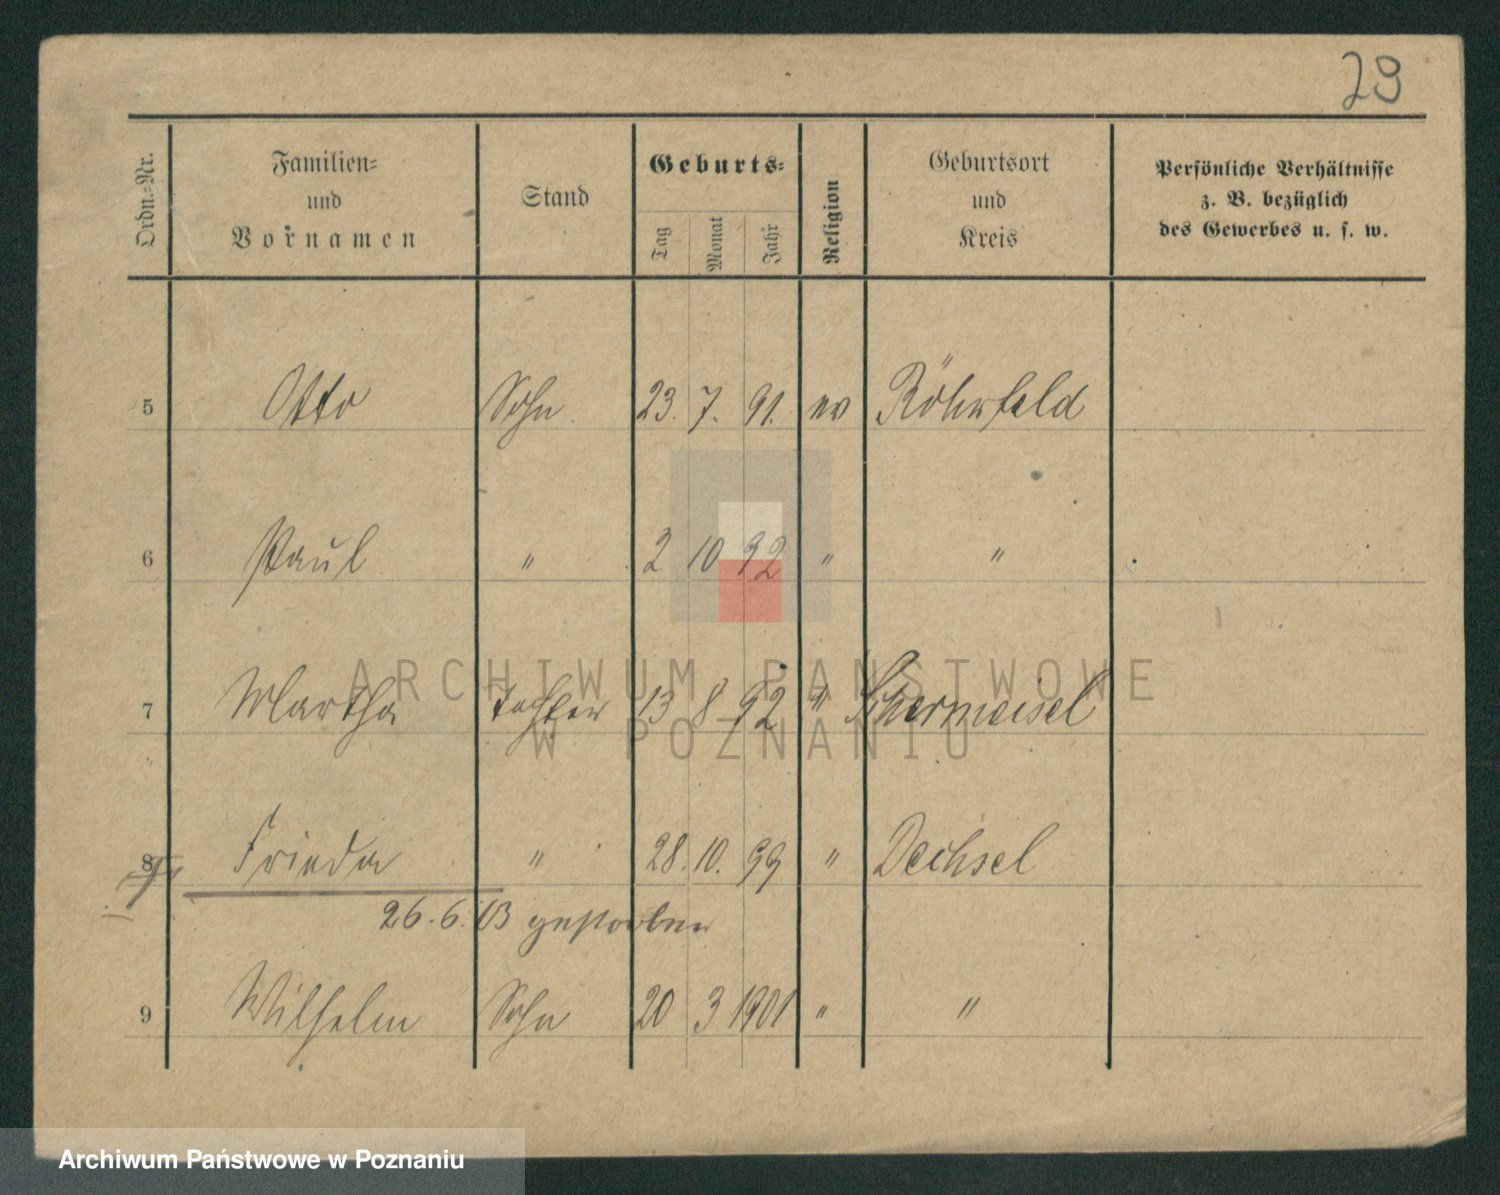 29
Ordn.-Nr.
Familien-
und
Vornamen
Stand
Geburts-
Tag
Monat
Jahr
Religion
Geburtsort
und
Kreis
Persönliche Verhältnisse
z. B. bezüglich
des Gewerbes u. s. w.
5 Otto Sohn 23. 7. 91. ev Röhrfeld
6 Paul " 2 10 92 " "
7 Martha Tochter 13 8 92 " Schermeisel
8 Frieda " 28. 10. 99 " Dechsel
26. 6. 03 gestorben
9 Wilhelm Sohn 20 3 1901 " "
ARCHIWUM PAŃSTWOWE
W POZNANIU
Archiwum Państwowe w Poznaniu